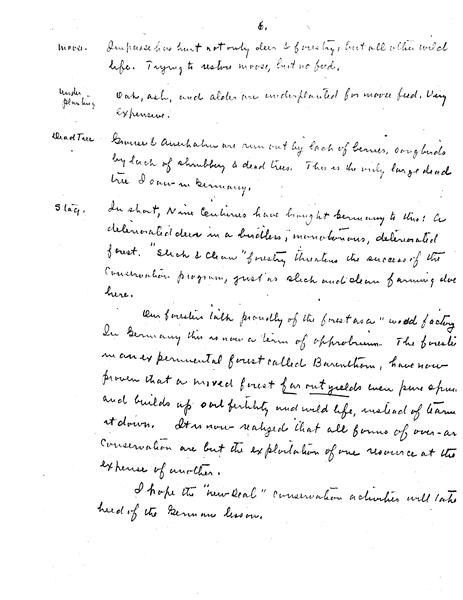 6.
Moose. Impasse has hurt not only deer & forestry, but all other wild
life. Trying to restore moose, but no feed.
Under planting Oak, ash, and alder are underplanted for moose feed. Very
expensive.
Dead Tree Grouse & Auerhahn are run out by lack of berries, songbirds
by lack of shrubbery & dead trees. This is the only large dead
tree I saw in Germany.
Stag. In short, Nine Centuries have brought Germany to this: A
deteriorated deer in a birdless, monotonous, deteriorated
forest. "Slick & Clean" forestry threatens the success of the
Conservation program, just as slick and clean farming doe
here.
Our foresters talk proudly of the forest as a "wood factory
In Germany this is now a term of opprobrium. The foreste
in an experimental forest called Barenthorn, have now
proven that a mixed forest far outyields even pure spru
and builds up soil fertility and wild life, instead of tearin
it down. It is now realized that all forms of over-ar
conservation are but the exploitation of one resource at the
expense of another.
I hope the "new deal" conservation activities will take
heed of the German lesson.